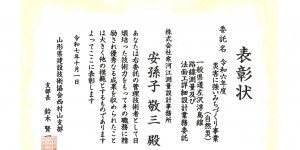 表彰状
委託名 令和六年度
災害に強いみちづくり事業
(自然災)
一般県道左沢浮島線
路線測量及び
法面詳細設計業務委託
株式会社寒河江測量設計事務所
安孫子 敬三 殿
あなたは右委託の管理技術者として日
頃培った技術力をもってその職務に精
励され優秀なる成果を収められたこと
は大きく他の模範とするものであります
よってここに表彰します
令和七年十月一日
山形県建設技術協会西村山支部
支部長 鈴木 賢一